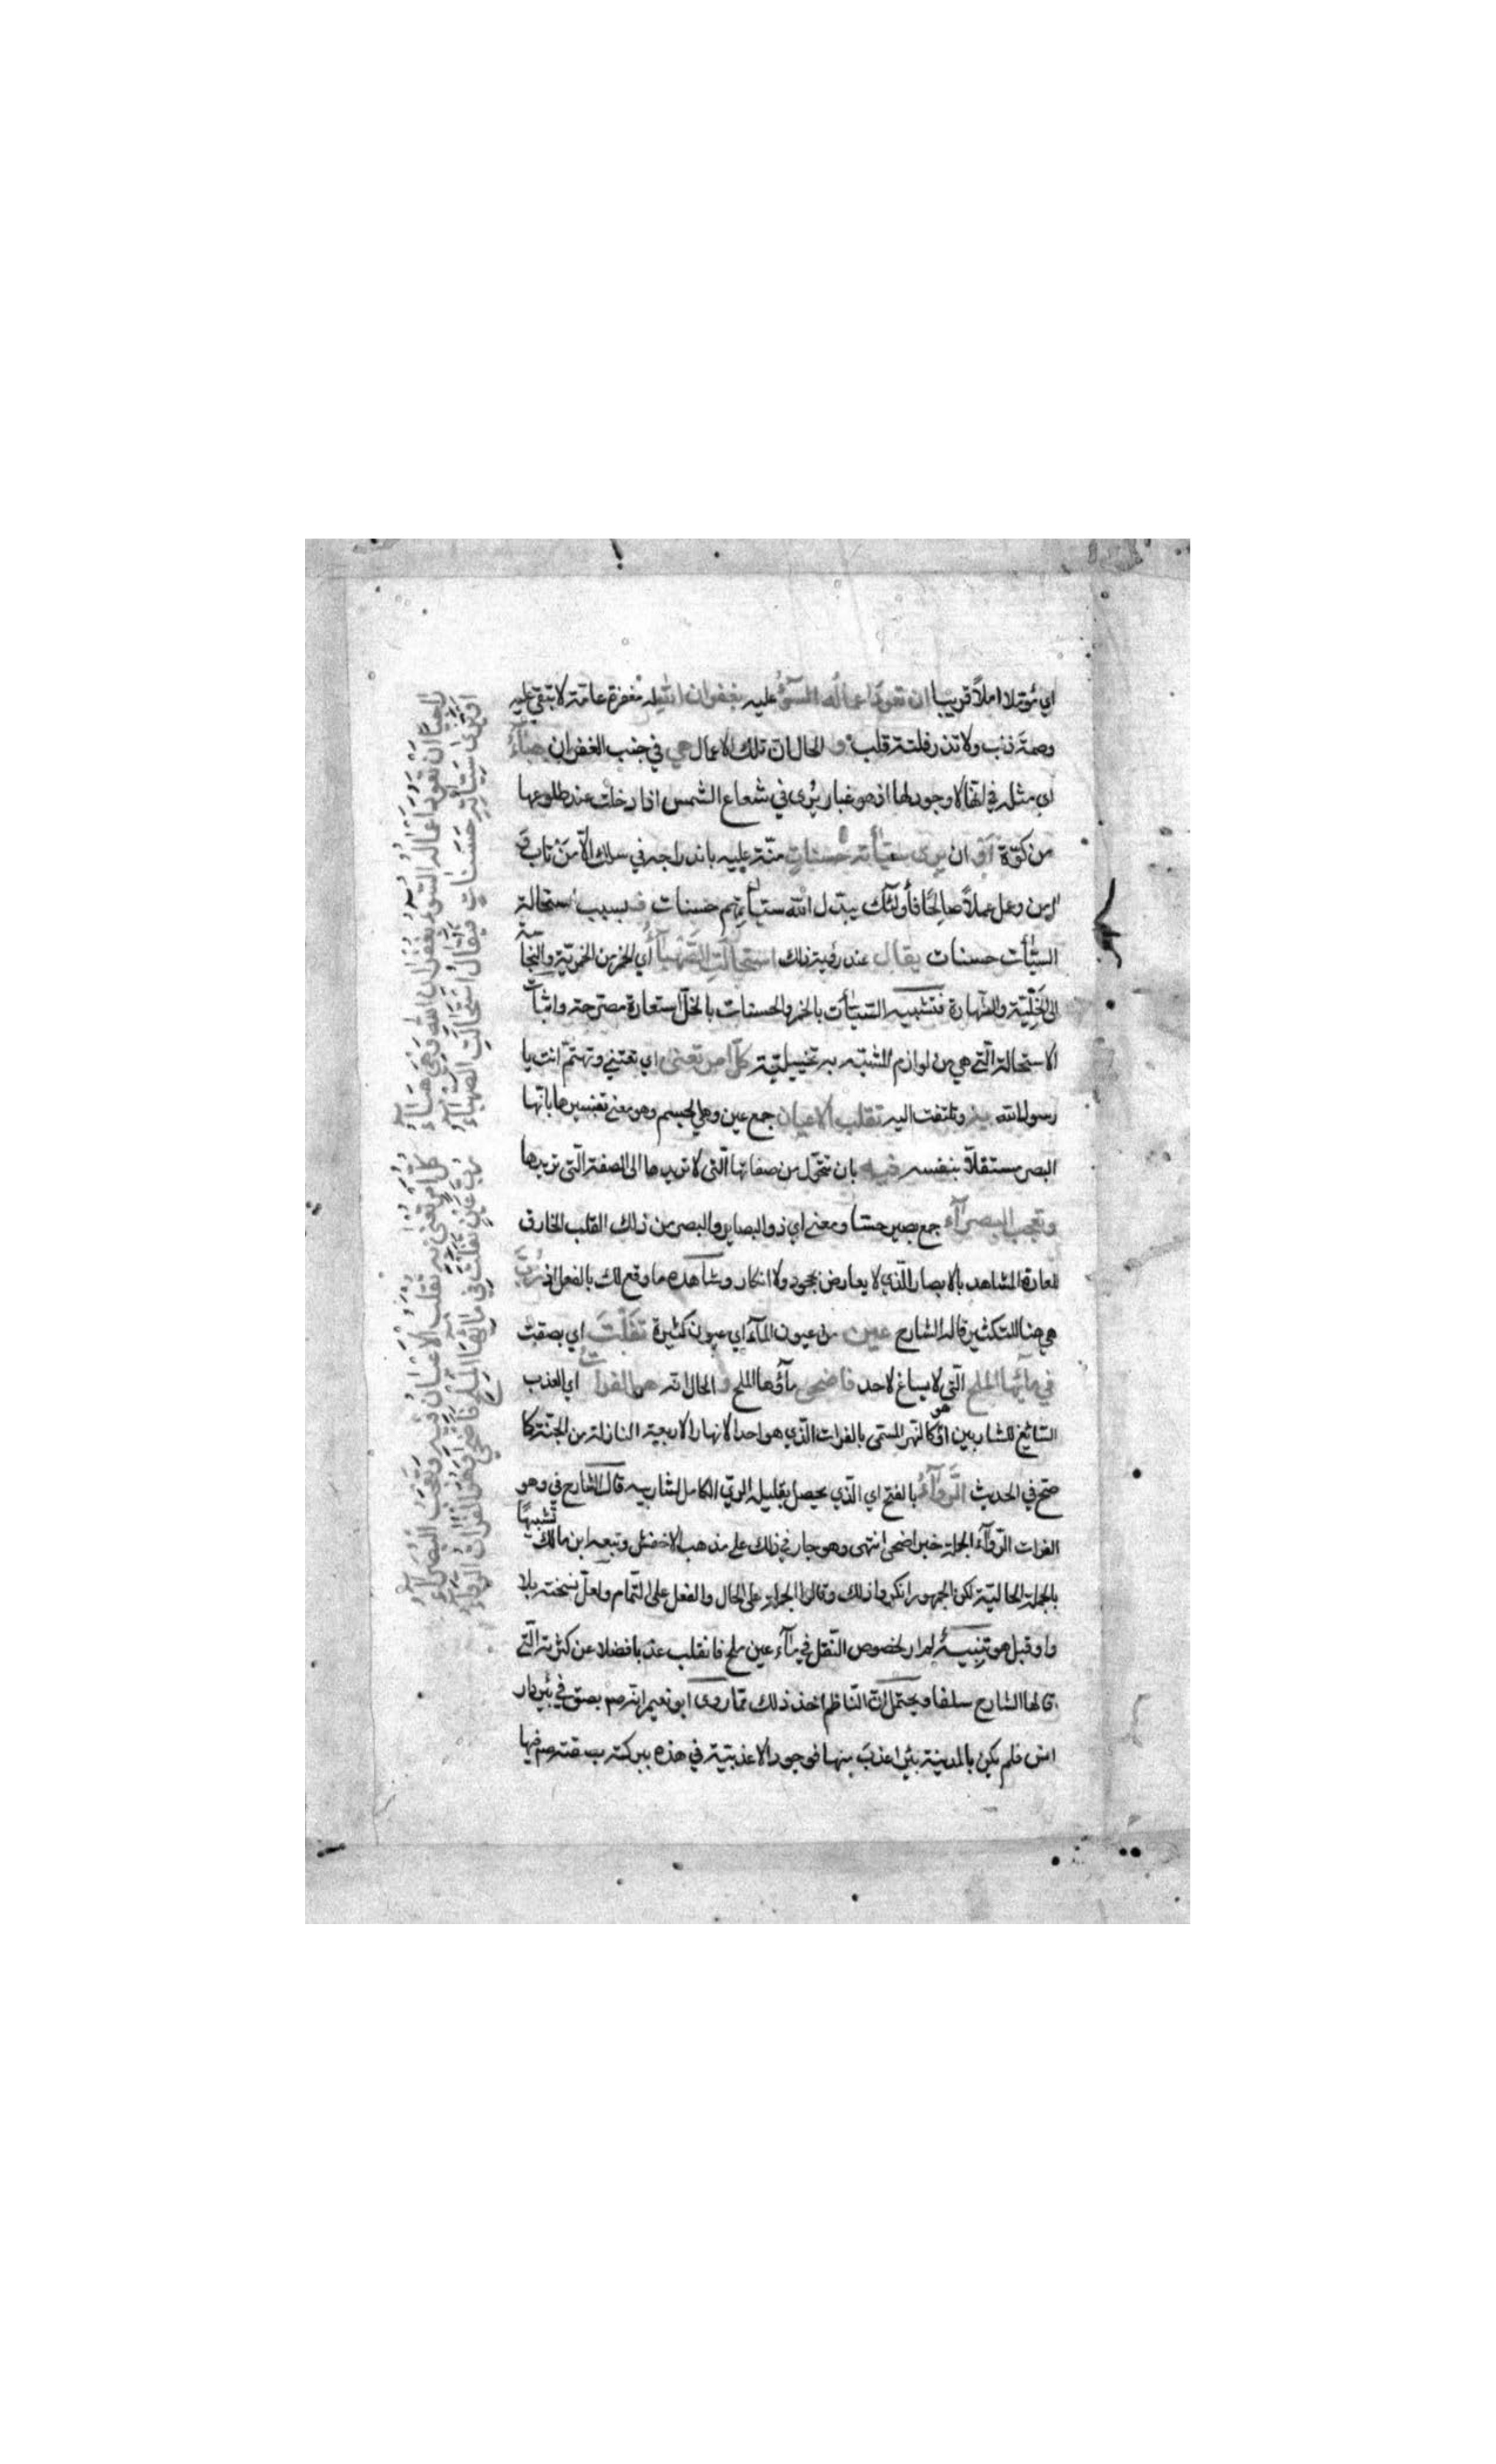 اي مؤملا املاً قريبا ان تعود اعماله السوءُ عليه بغفران الله له مغفرة عامّة لا تبقي عليه
وصمة ذنب ولا تذر فلتة قلب و الحال ان تلك الاعمال هي في جنب الغفران هبآءُ
اي مثله في انها لا وجود لها اذ هو غبار يُرى في شعاع الشمس اذا دخلت عند طلوعها
من كوّة أوْ ان يرى سيّأته حسناتٍ منّة عليه باندراجه في سلك الّا مَنْ تاب و
امن وعمل عملاً صالحًا فأولئك يبدّل الله سيّأتهم حسنات فـ بسبب استحالة
السيّأت حسنات يقال عند رؤية ذلك استحالتِ الصَّهْبآءُ اي الخمر من الخمريّة والنجاسة
الى الخلّيّة والطهارة فتشبيه السّيّأت بالخمر والحسنات بالخلّ استعارة مصرحة واثبات
الاستحالة الّتي هي من لوازم المشبّه به تخييليّة كلّ امر تعنى اي تعتني وتهتمّ انت يا
رسول الله به وتلتفت اليه تقلب الاعيان جمع عين وهي الجسم وهو معنى تفسيرها بانها
البصر مستقلّا بنفسه فيه بان تتحوّل من صفاتها الّتي لا تريدها الى الصّفة الّتي تريدها
وتعجب البصرآء جمع بصير حسّا ومعنى اي ذو البصاير والبصر من ذلك القلب الخارق
للعادة المشاهد بالابصار الّذي لا يعارض بجحود ولا انكار وشاهده ما وقع لك بالفعل اذ رُبَّ
هي هنا للتكثير قاله الشارح عين من عيون المآء اي عيون كثيرة تفَلْتَ اي بصقت
في مآئها الملح الّتي لا يساغ لاحد فاضحى مآؤها الملح و الحال انّه هو الفرات اي العذب
السّائغ للشاربين او هو كالنّهر المسمّى بالفرات الّذي هو احد الانهار الاربعة النازلة من الجنّة كما
صحّ في الحديث الرَّوآءُ بالفتح اي الّذي يحصل بقليله الريّ الكامل لشاربيه قال الشارح في وهو
الفرات الرّوآء الجملة خبر اضحى انتهى وهو جار في ذلك على مذهب الاخفش وتبعه ابن مالك تشبيهًا
بالجملة الحاليّة لكن الجمهور انكروا ذلك وقالوا الجملة على الحال والفعل على التّمام ولعلّ نسخته بلا
واو قبل هو تنبيهٌ لم ار لخصوص التّفل في مآء عين ملح فانقلب عذبا فضلا عن كثرته الّتي
قالها الشارح سلفا ويحتمل انّ النّاظم اخذ ذلك ممّا روى ابو نعيم انّه صم بصق في بئر دار
انس فلم يكن بالمدينة بئر اعذبَ منها فوجود الاعذبيّة في هذه ببركة بصقته صم فيها
راجيًا ان تعود اعماله السّوء بغفران الله وهي هبآء
او ترى سيّأته حسناتٍ فيقال استحالت الصهباء
كلّ امر تعنى به تقلب الاعيان فيه وتعجب البصرآء
رُبَّ عين تفلت في مآئها الملح فاضحى وهو الفرات الرواء